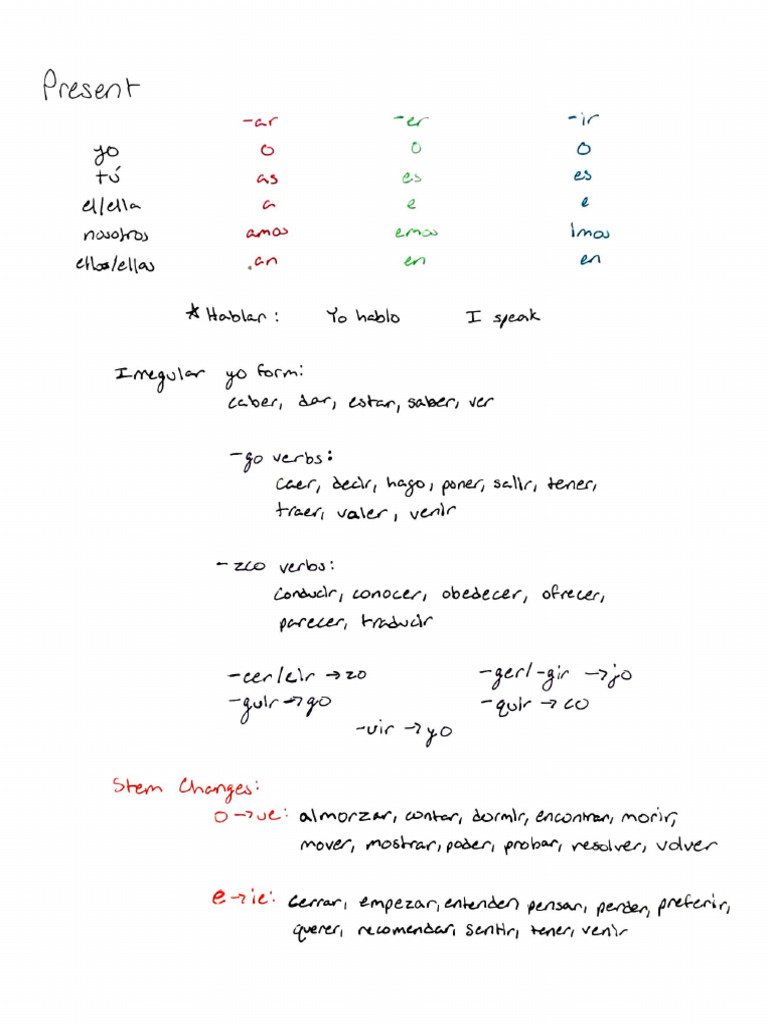 Present
-ar -er -ir
yo o o o
tú as es es
el/ella a e e
nosotros amos emos imos
ellos/ellas an en en
*Hablar: Yo hablo I speak
Irregular yo form:
caber, dar, estar, saber, ver
-go verbs:
caer, decir, hago, poner, salir, tener,
traer, valer, venir
-zco verbs:
conducir, conocer, obedecer, ofrecer,
parecer, traducir
-cer/cir →zo -ger/-gir →jo
-guir→go -quir →co
-uir →yo
Stem Changes:
o→ue: almorzar, contar, dormir, encontrar, morir,
mover, mostrar, poder, probar, resolver, volver
e→ie: cerrar, empezar, entender, pensar, perder, preferir,
querer, recomendar, sentir, tener, venir